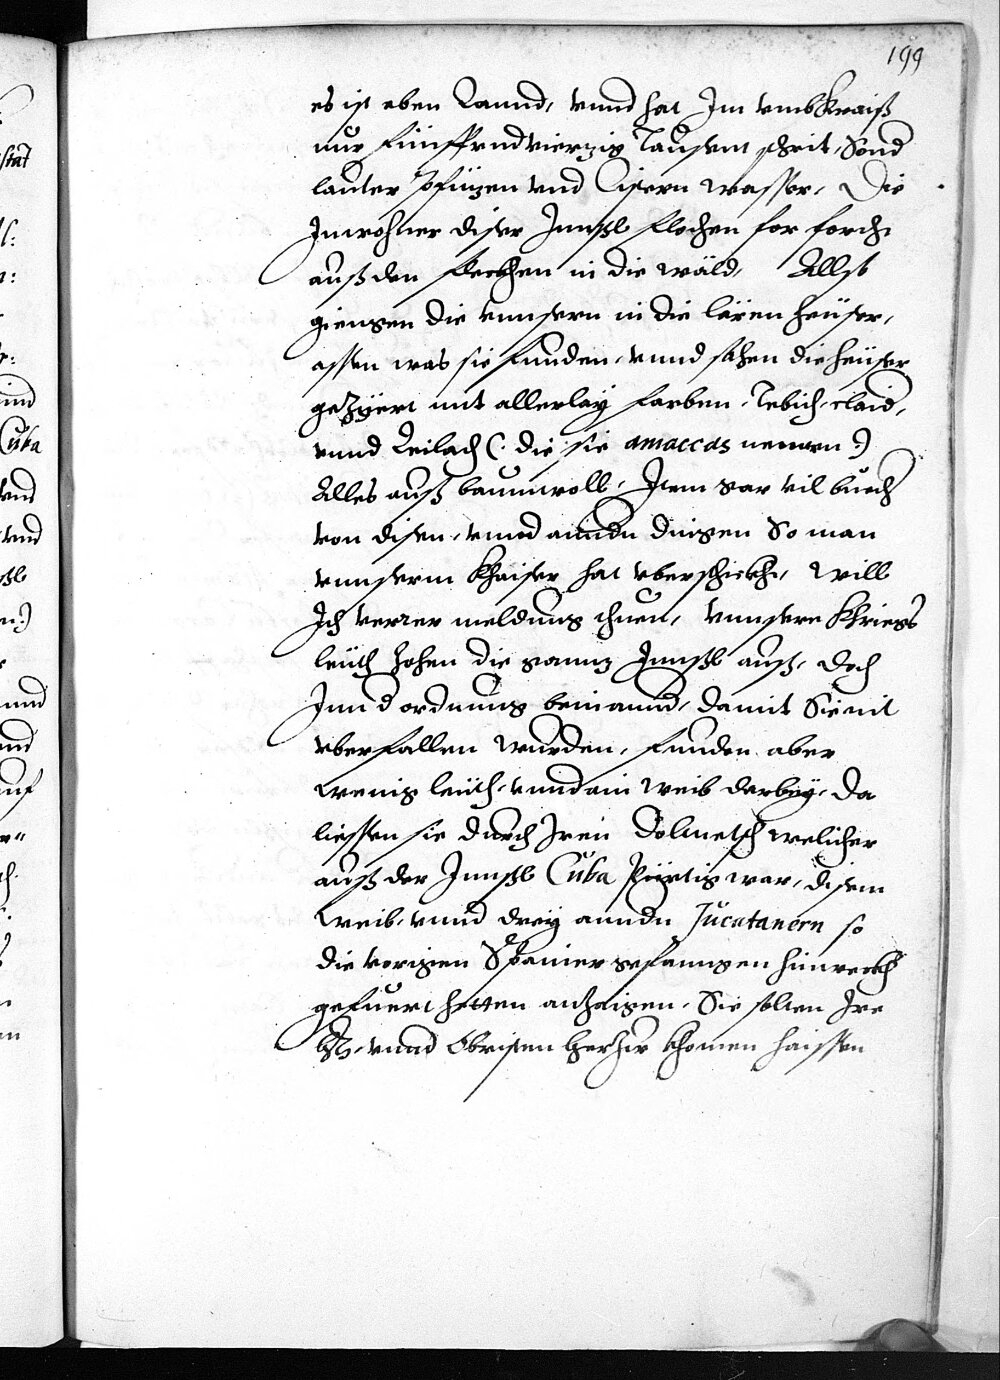 199
es ist eben Lannd, vnnd hat Im vmbkraiß
nur Fünffvndvierzig Tausent schrit, Sond
lauter pfüzen vnd Cistern wasser, Die
Inwohner diser Innßl flohen for forch
auß den Fleckhen in die wäld, Allß
giengen die vnnsern in die lären heüser,
assen was sie funden, vnnd sahen die heüser
gezüert mit allerlay farben, Tebich, claid,
vnnd Leilach (: die sie amaccas nennen :)
Alles auß baumwoll, Item gar vil buech
von disen, vnnd anndn dingen So man
vnnserm Khaiser hat vberschickht, Will
Ich verrer meldung thuen, Vnnsere Khriegs
leüth the ganntz Innßl auß, doch
Inn d ordnung beinannd, damit Sie nit
vberfallen wurden, funden aber
wenig leüth, vnnd ain weib darbey, Da
liessen sie durch Iren Dolmetsch welicher
auß der Innßl Cuba pürtig war, disem
weib, vnnd drey anndn Jucatanern so
die vorigen Spanier gefanngen hinweckh
gefuert hetten anzaigen, Sie solten Ire
vnnd Obristen herfür khomen haissen
stat
l:
n:
e:
ind
Cuba
vnd
vnd
ßl
n:)
nnd
nd
uf